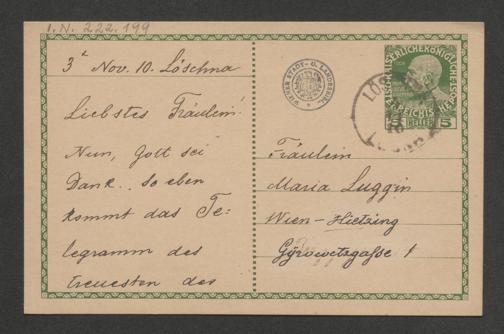 I.N. 222.199
3 Nov. 10. Löschna
Liebstes Fräulein!
Nun, Gott sei
Dank.. So eben
kommt das Te-
legramm des
treuesten des
WIENER STADT- U. LANDESBIBL.
5 HELLER 5
Fräulein
Maria Luggin
Wien - Hietzing
Gyrowetzgaße 1